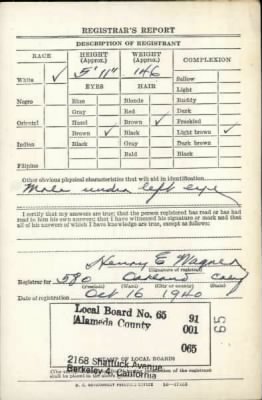 REGISTRAR'S REPORT
DESCRIPTION OF REGISTRANT
RACE HEIGHT (Approx.) WEIGHT (Approx.) COMPLEXION
5' 11" 146
White ✓ Sallow
EYES HAIR Light
Negro Blue Blonde Ruddy
Gray Red Dark
Oriental Hazel Brown ✓ Freckled
Brown ✓ Black Light brown ✓
Indian Black Gray Dark brown
Bald Black
Filipino
Other obvious physical characteristics that will aid in identification
Mole under left eye
I certify that my answers are true; that the person registered has read or has had
read to him his own answers; that I have witnessed his signature or mark and that
all of his answers of which I have knowledge are true, except as follows:
Henry E Wagner
(Signature of registrar)
Registrar for 580 Oakland
(Precinct) (City or county) (State)
Date of registration Oct 16 1940
Local Board No. 65 91
Alameda County 001
065
2168 Shattuck Avenue
Berkeley 4, California
65
OF LOCAL BOARD)